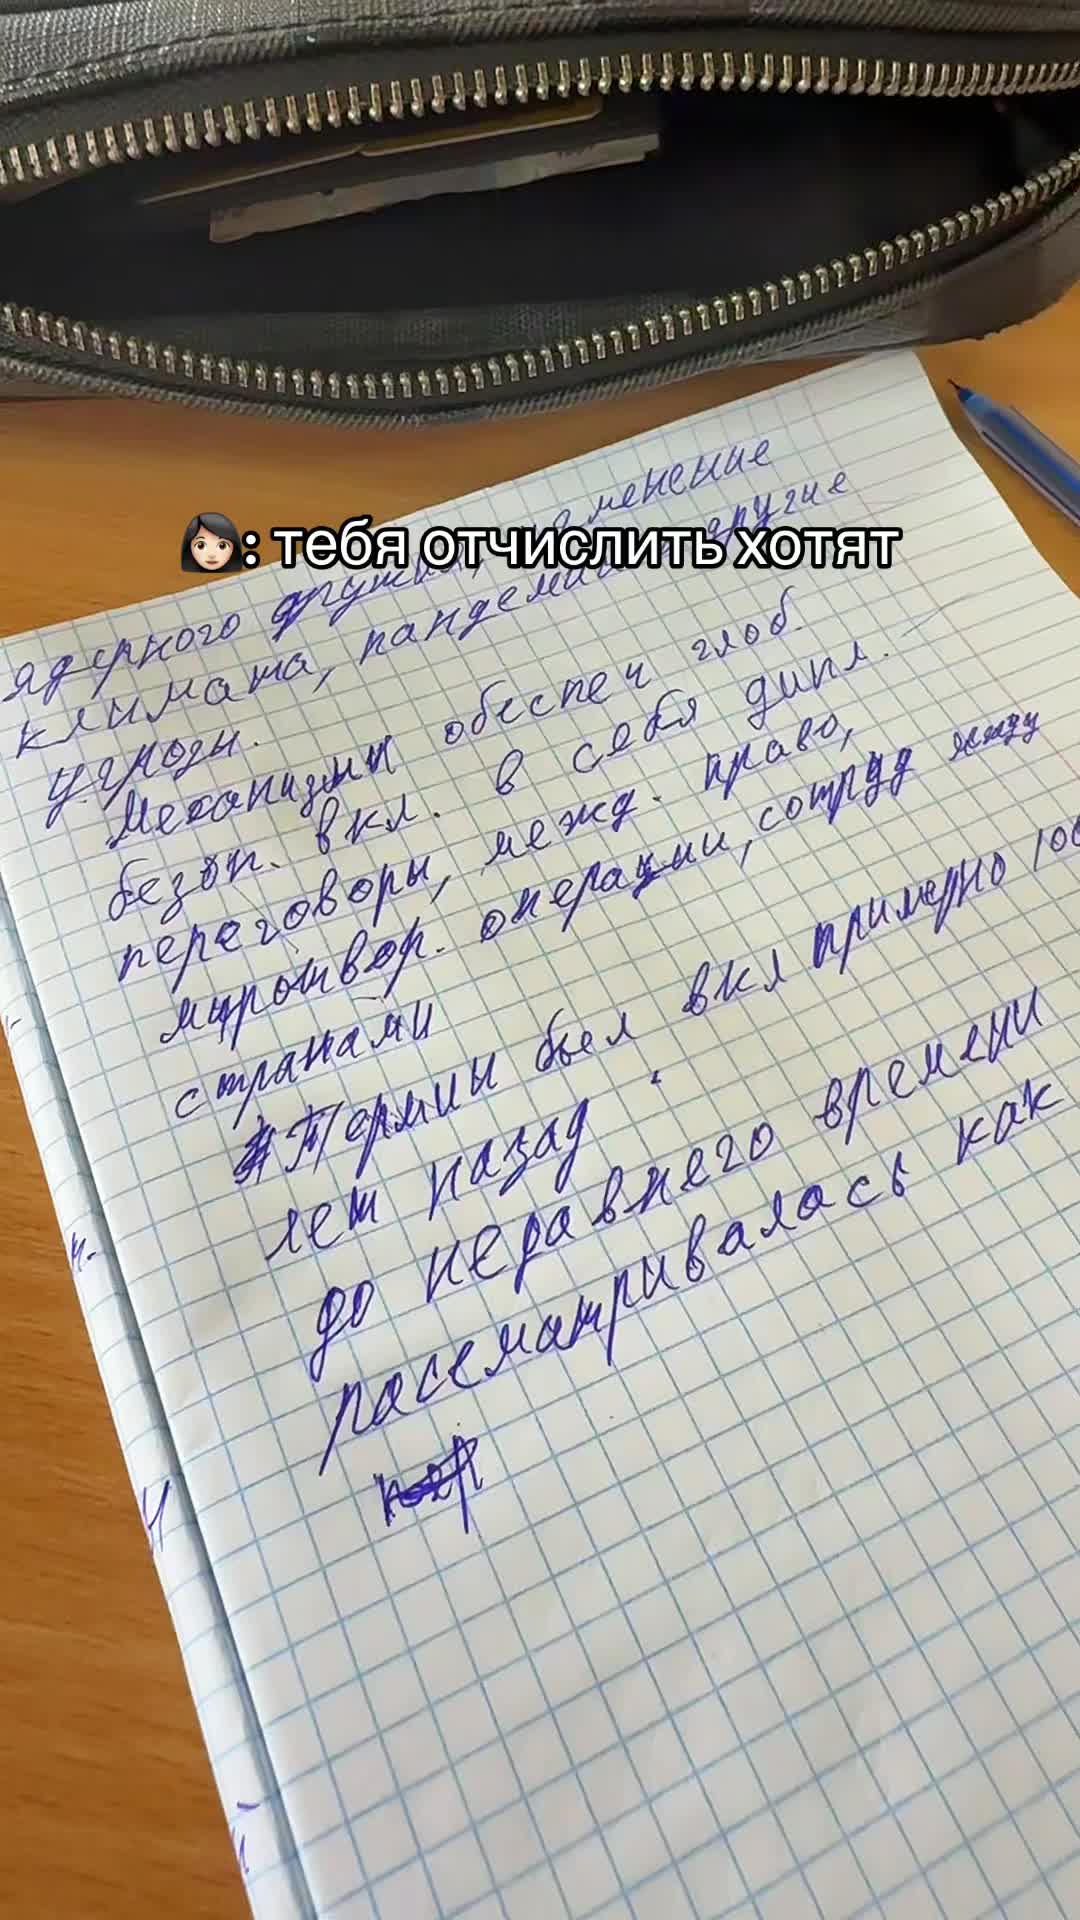 👩🏻: тебя отчислить хотят
ядерного оружия, изменение
климата, пандемии и другие
угрозы.
Механизмы обеспеч глоб.
безоп. вкл. в себя дипл.
переговоры, межд. право,
миротвор. операции, сотруд между
странами
Термин был вкл примерно 100
лет назад.
до недавнего времени
рассматривалась как